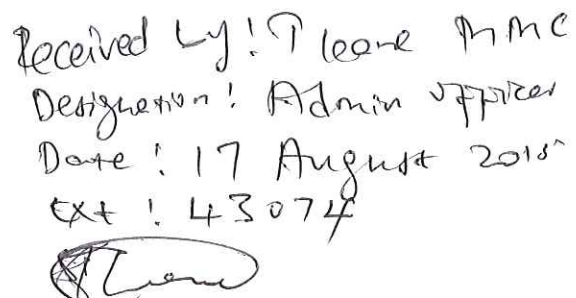 Received by: T leone MMC
Designation: Admin officer
Date: 17 August 2015
Ext: 43074